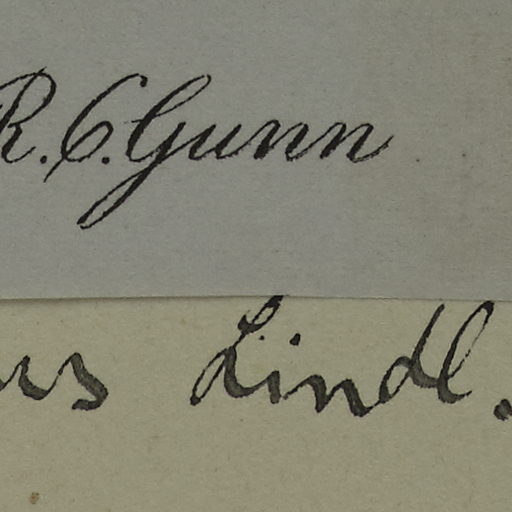 R.C. Gunn
us Lindl.